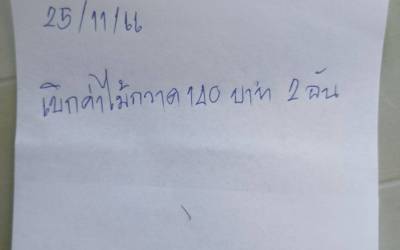 25/11/66
เบิกค่าไม้กวาด 140 บาท 2 อัน